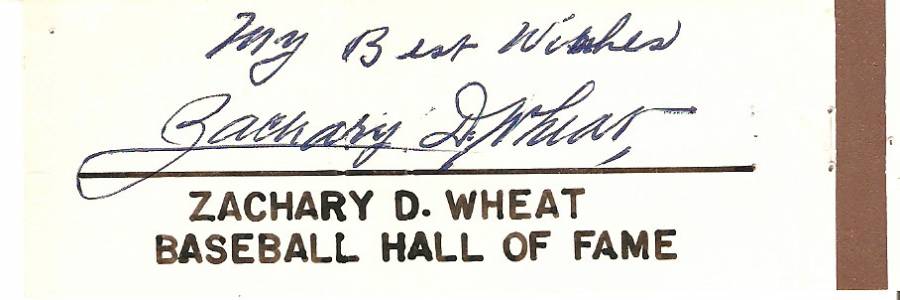 My Best Wishes
Zachary D. Wheat
ZACHARY D. WHEAT
BASEBALL HALL OF FAME